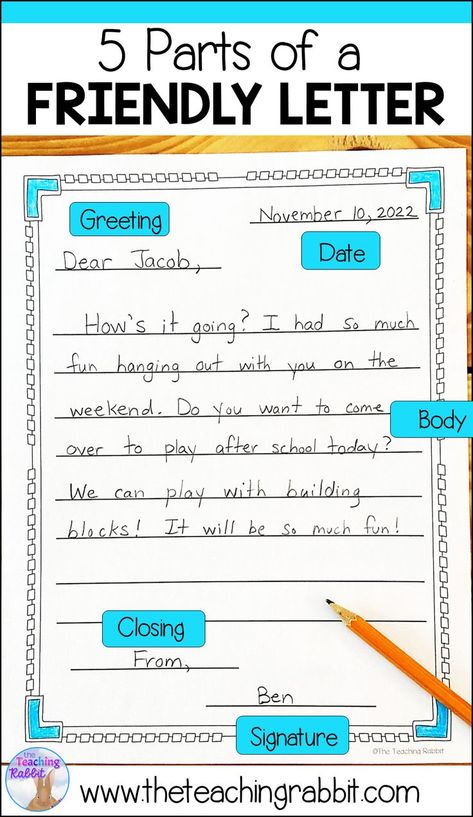 5 Parts of a
FRIENDLY LETTER
Greeting
November 10, 2022
Date
Dear Jacob,
How's it going? I had so much
fun hanging out with you on the
weekend. Do you want to come
Body
over to play after school today?
We can play with building
blocks! It will be so much fun!
Closing
From,
Ben
Signature
©The Teaching Rabbit
the
Teaching
Rabbit
www.theteachingrabbit.com